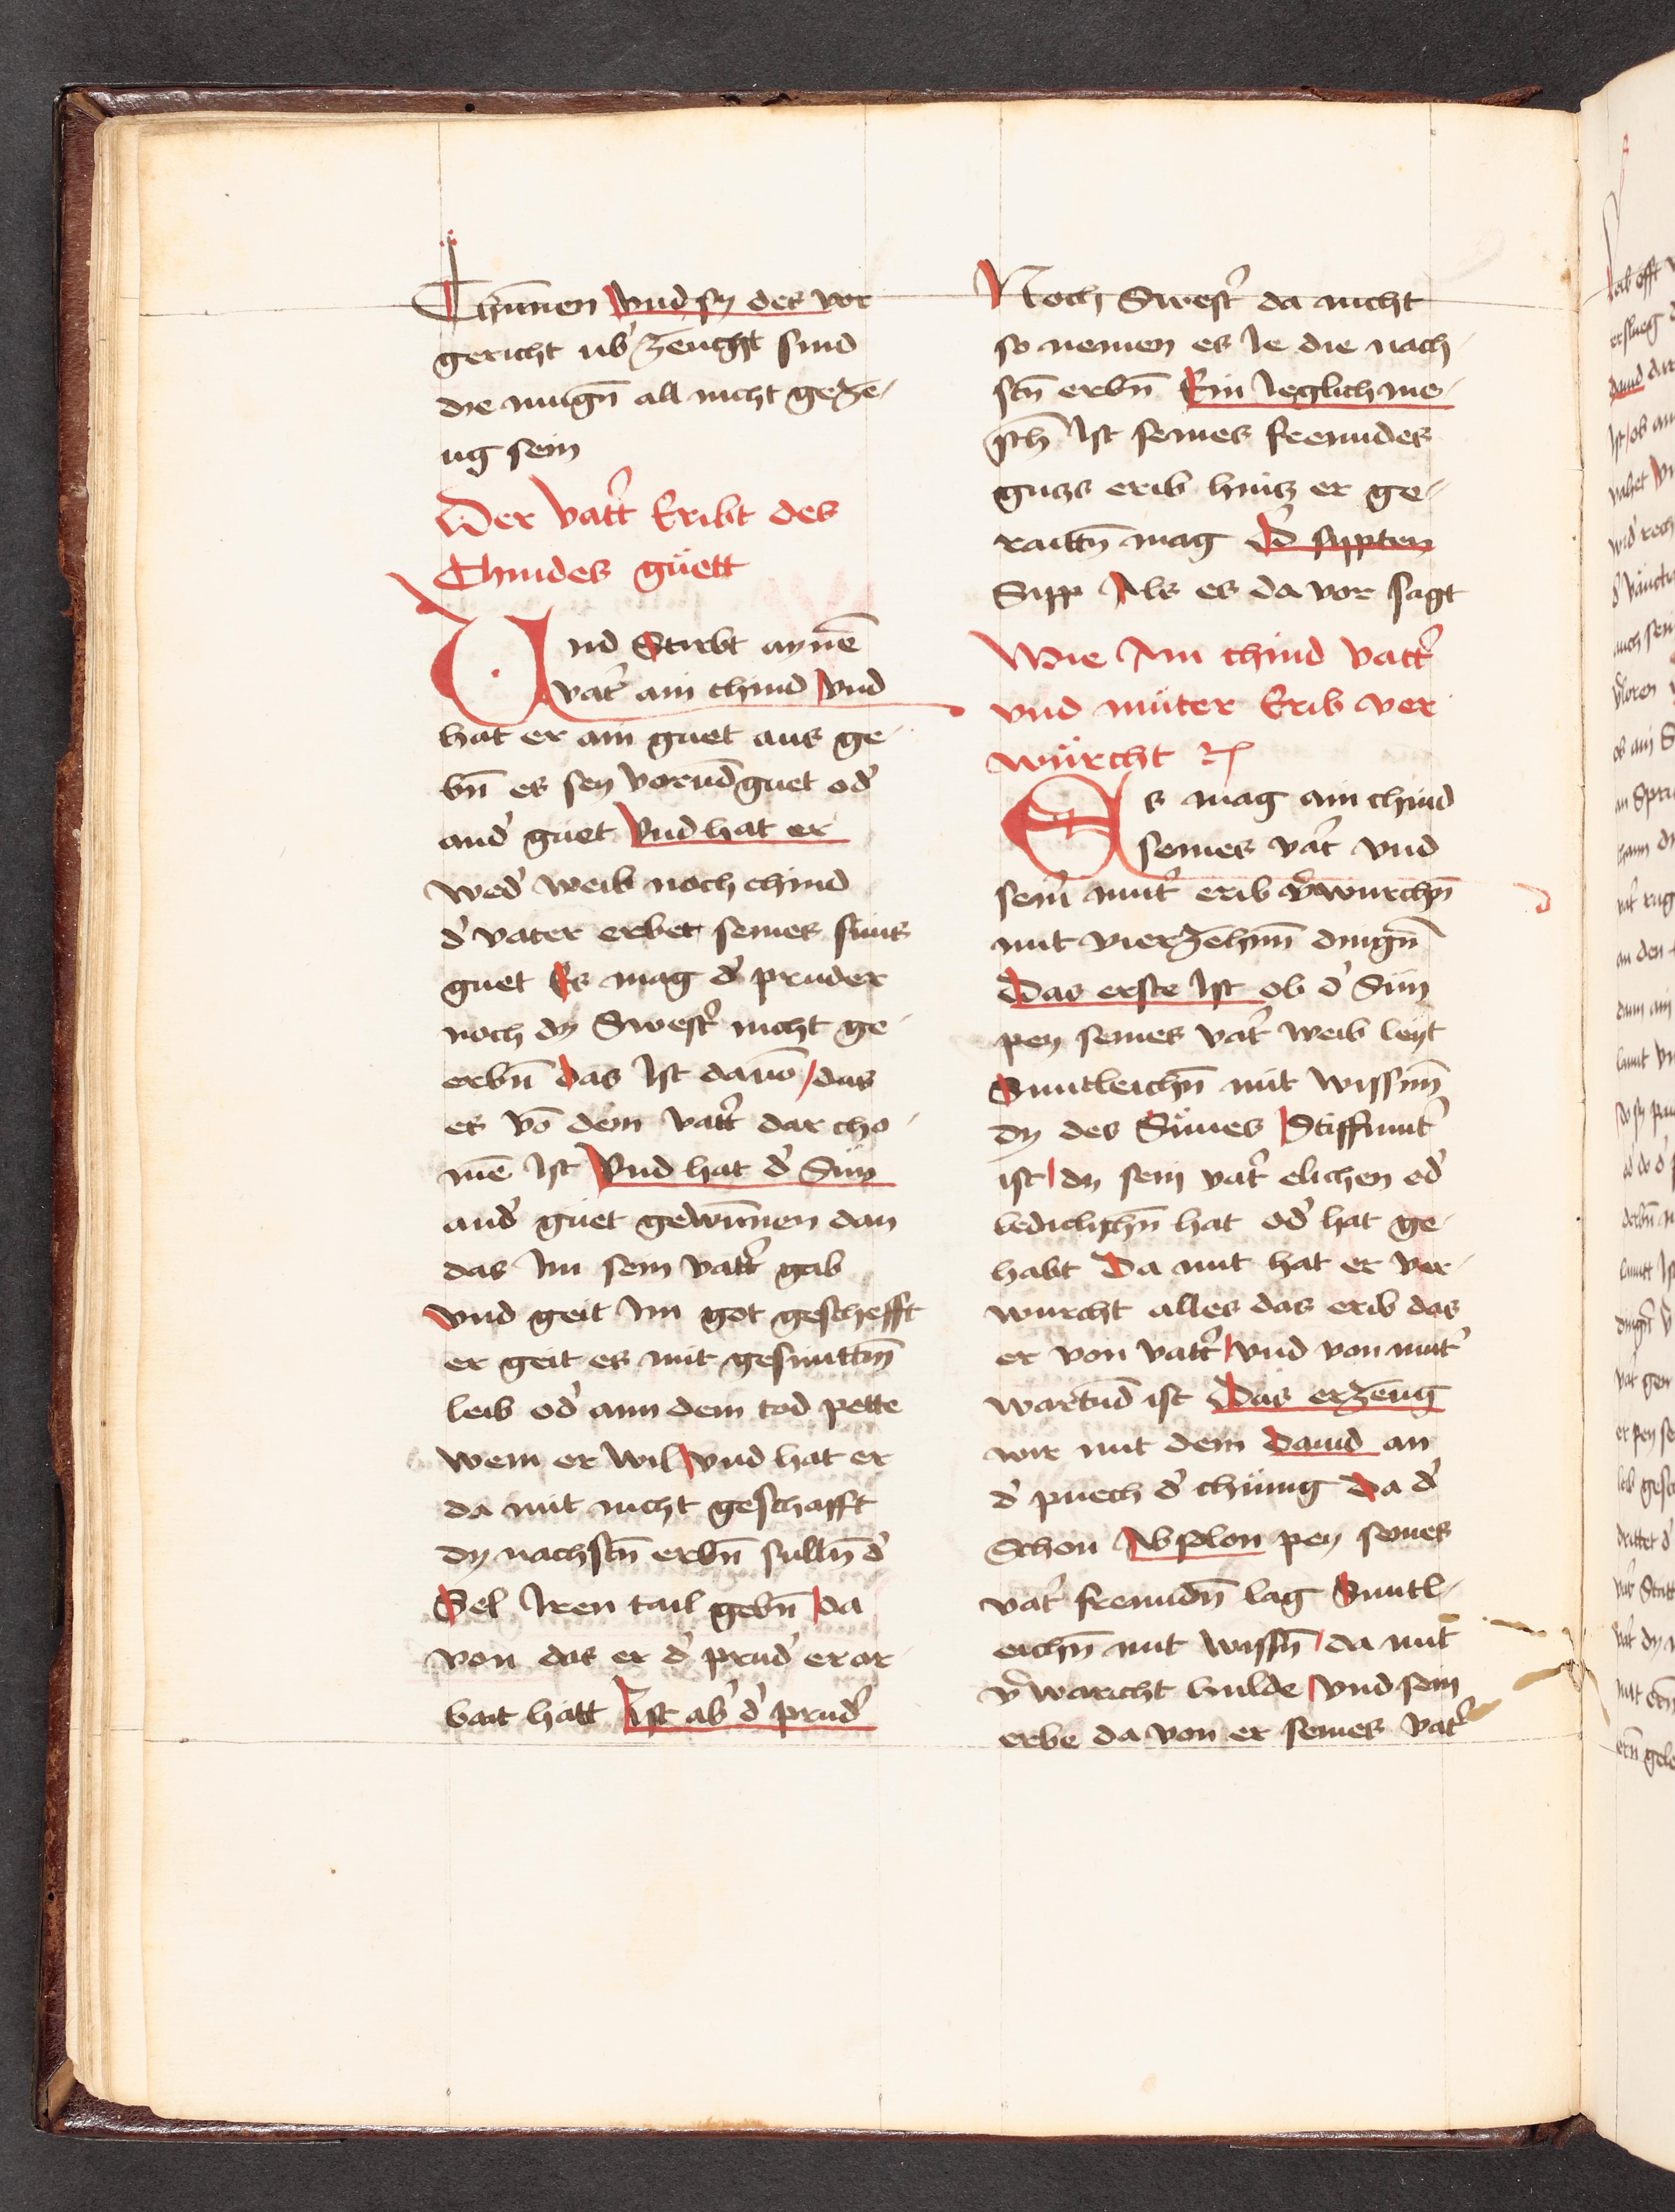 Chumen Vnd sy des vor
gericht ub' zeucht sind
die mugn̄ all nicht geze
ug sein
Der Vatt' Eribt des
Chindes guett
Vnd Stirbt aynē
vat' ain chind Vnd
hat er ain guet aus ge
bn̄ es sey Varūd guet od'
and' guet Vnd hat er
wed' weib noch chind
d' vater erbet seines suns
guet Es mag d' pruder
noch dy Swest' nicht ge
erbn̄ das Ist dauō / das
es vō dem vatt' dar cho
mē Ist Vnd hat d' Sun
and' guet gewūnen dan
das Im sein Vatt' gab
vnd geit Im got geschefft
er geit es mit gesunttm̄
leib od' ann dem tod pette
wem er wil vnd hat er
da mit nicht geschafft
dy nachstn̄ erbn̄ sulln̄ d'
Sel Iren tail gebn̄ da
von das er d' prud' erar
bait hatt Ist ab' d' prud'
Noch Swest' da nicht
so nemen es Ie die nach
stn̄ erbn̄ Ein Ieglich me
sch̄ Ist seines freundes
gutzs erib hintz er ge
raittn̄ mag d' sippten
Sipp Als es da vor sagt
Wie Ain chind vatt'
vnd muter Erib ver
wurcht
Es mag ain chind
seines vat' vnd
sein' mut' erib v'wurchn̄
mit vierzehnn̄ dingn̄
Das erste Ist ob d' Sun
pey seines vat' weib leyt
Suntleichn̄ mit wissnn̄
dy des Sunes Stiffmut'
ist / dy sein vat' elichen od'
ledichchn̄ hat od' hat ge
habt Da mit hat er ver
wurcht alles das erib das
er von vatt' vnd von mut'
wartūd ist Das erzeug
wir mit dem dauid an
d' puech d' chunig Da d'
Schon Absolon pey seines
vat' freundn̄ lag Suntl
eichn̄ mit wissn̄ / da mit
v'waricht hulde vnd sein
erbe da von er seines vat'